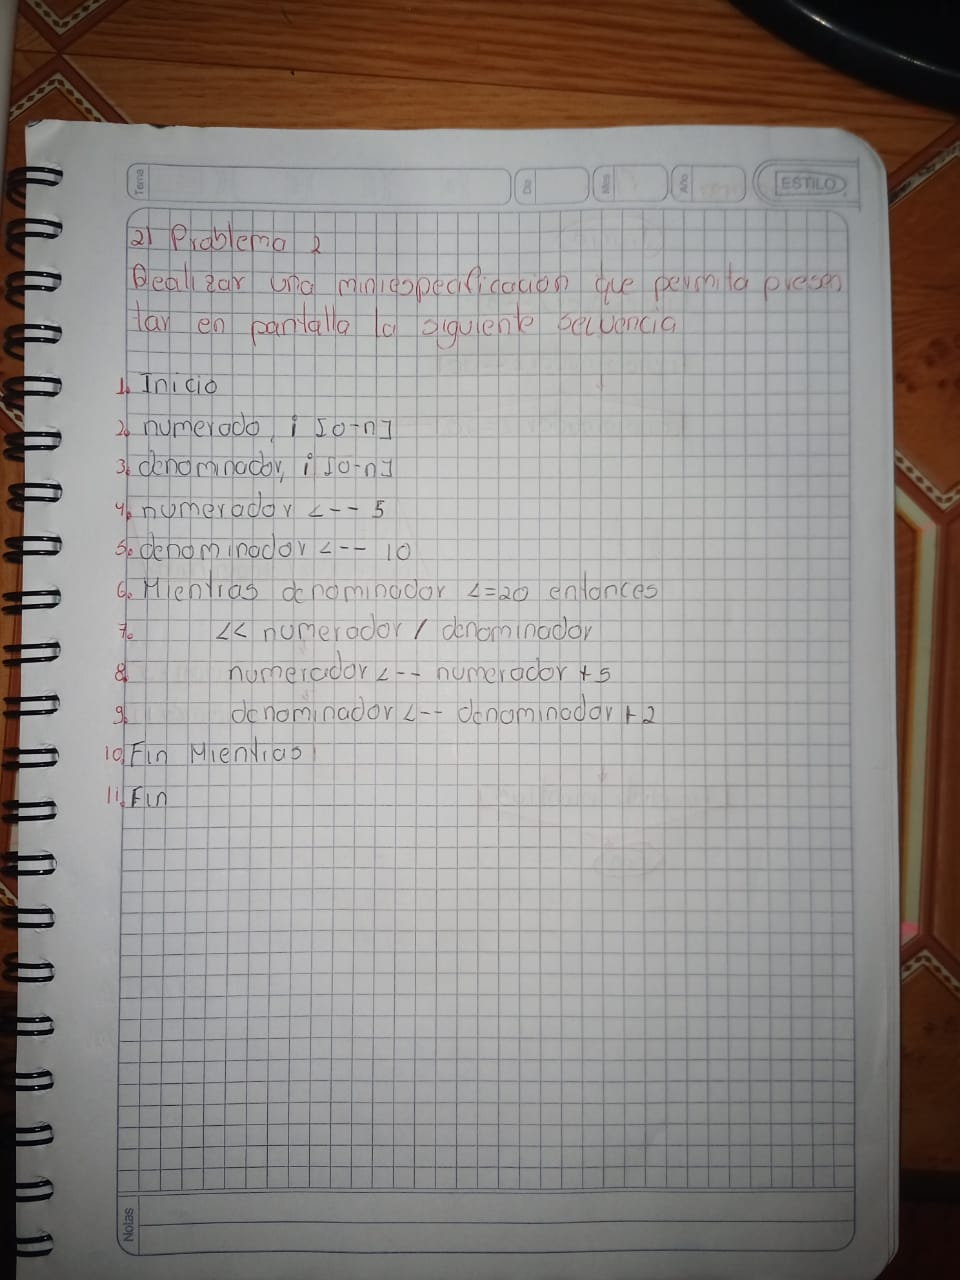 Tema
Dia
Mes
Año
ESTILO
2) Problema 2
Realizar una miniespecificacion que permita presen
tar en pantalla la siguiente secuencia
1. Inicio
2. numerado, i [0-n]
3. denominador, i [0-n]
4. numerador <-- 5
5. denominador <-- 10
6. Mientras denominador <=20 entonces
7. << numerador / denominador
8. numerador <-- numerador +5
9. denominador <-- denominador +2
10. Fin Mientras
11. Fin
Notas